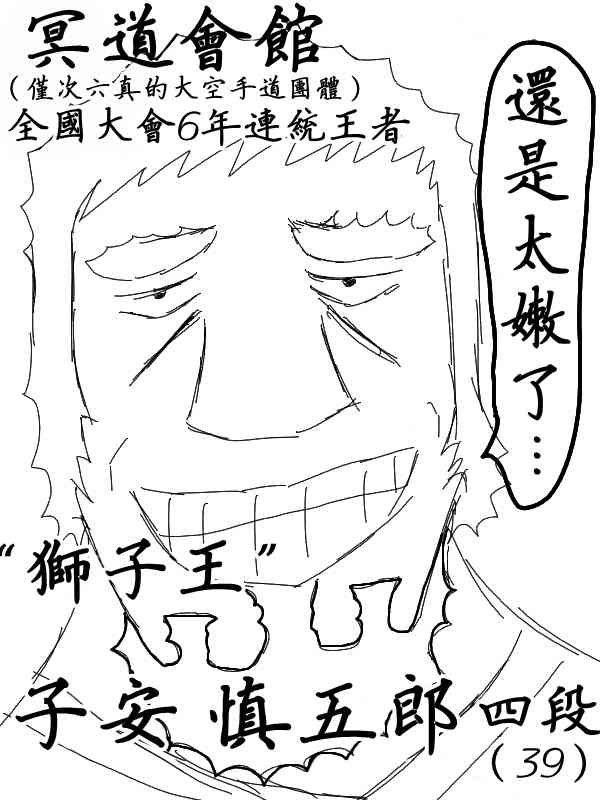 冥道會館
（僅次六真的大空手道團體）
全國大會6年連統王者
還是太嫩了…
“獅子王”
子安 慎五郎 四段
（39）